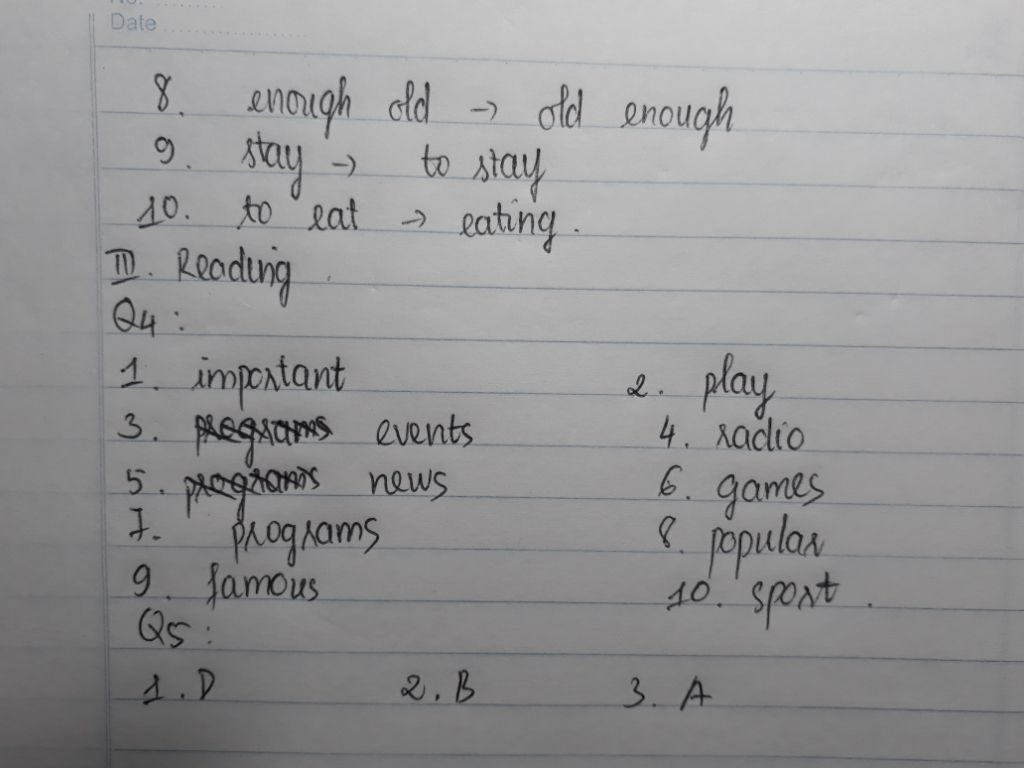 No. ..........
Date ....................
8. enough old → old enough
9. stay → to stay
10. to eat → eating.
III. Reading.
Q4:
1. important 2. play
3. programs events 4. radio
5. programs news 6. games
7. programs 8. popular
9. famous 10. sport.
Q5:
1. D 2. B 3. A